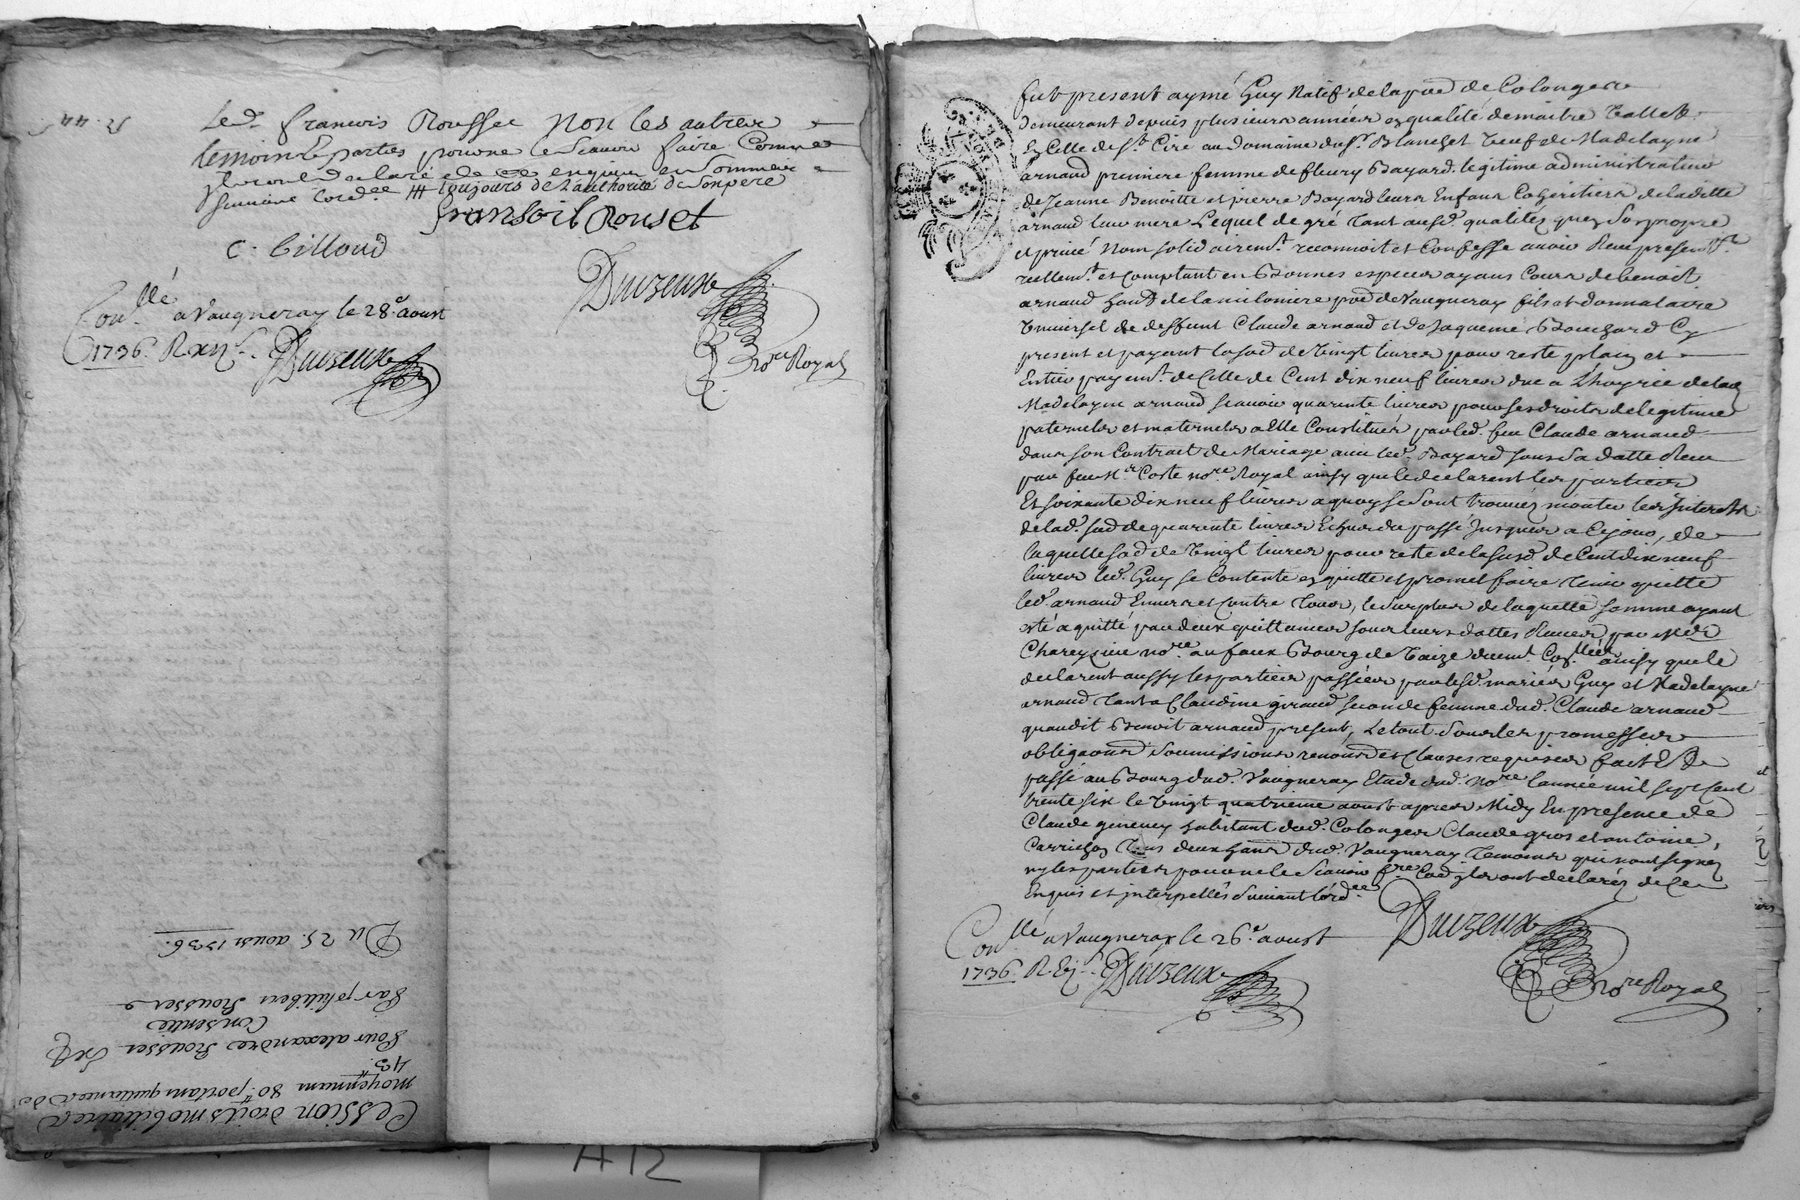 Led. francois Rousset Non les autres
temoins & parties pour ne le Scavoir faire Comme
ils ont declaré de ce enquis en Sommés
suivant l'ord.ce ### toujours de l'authorité de Son pere
fransoit Rouset
C. Billoud
Duizeux
No.re Royal
Con.llé a Vaugneray le 28.e aoust
1736. R xij s. Duizeux
Du 25. aoust 1736.
Cession droits mobilliaires
moyennant 80.ll portant quittance de
43.ll
Pour alexandre Rousset
Consentie
Par philibert Rousset
fut present aymé Guy Natif de la par. de Colonges
demeurant depuis plusieurs années en qualité de maitre Vallet
En Celle de S.t Ciré au domaine du S.r Blanchet Veuf de Madelayne
arnaud premiere femme de fleury Bayard legitime administrateur
de Jeanne Benoitte et pierre Bayard leurs Enfans Coheritiers de laditte
arnaud leur mere Lequel de gré tant ausd. qualités que de Son propre
et privé Nom solidairem.t reconnoit et Confesse avoir Receu presentem.t
reellem.t et comptant en Bonnes especes ayans Cours de benoit
arnaud hant de la milonniere par. de Vaugneray fils et donnataire
Universel de deffunt Claude arnaud et de Jaqueme Bouchard Cy
present et payant la so.e de Vingt livres pour reste plain et
Entier payem.t de Celle de Cent dix neuf livres due a L'hoyrie de lad.
Madelayne arnaud scavoir quarente livres pour ses droits de legitime
paternels et maternels a Elle Constitués par led. feu Claude arnaud
dans son Contrat de Mariage avec led. Bayard sous Sa datte Receu
par feu M.e Coste no.re Royal ainsy que le declarent les parties
Et soixante dix neuf livres a quoy se Sont trouvés monter les Interets
de lad. so.e de quarente livres Echus du passé Jusques a Cejour, de
laquelle so.e de Vingt livres pour reste de la susd. de Cent dix neuf
livres led. Guy se Contente en quitte et promet faire tenir quitte
led. arnaud Envers et Contre tous, le Surplus de laquelle somme ayant
eté aquitté par deux quittances sous leurs dattes Receues par M.e
Chareyzieu no.re au faux Bourg de Vaize duem.t Con.llées ainsy que le
declarent aussy les parties passées par lesd. mariés Guy et Madelayne
arnaud tant a Claudine giraud seconde femme dud. Claude arnaud
quaudit Benoit arnaud present, Le tout Sous les promesses
obligaons Soumissions renonons et Clauses requises fait &
passé au Bourg dud. Vaugneray Etude dud. No.re l'année mil sept cent
trente six le Vingt quatrieme aoust apres Midy En presence de
Claude geneney habitant dud. Colonges Claude gros et antoine
Carrichon tous deux hans dud. Vaugneray temoins qui n'ont signé
ny les parties pour ne le Scavoir f.re Co.e ils ont declarés de Ce
Enquis et interpellés Suivant lord.ce
Duizeux
No.re Royal
Con.llé a Vaugneray le 26.e aoust
1736. R xij s. Duizeux
A 12